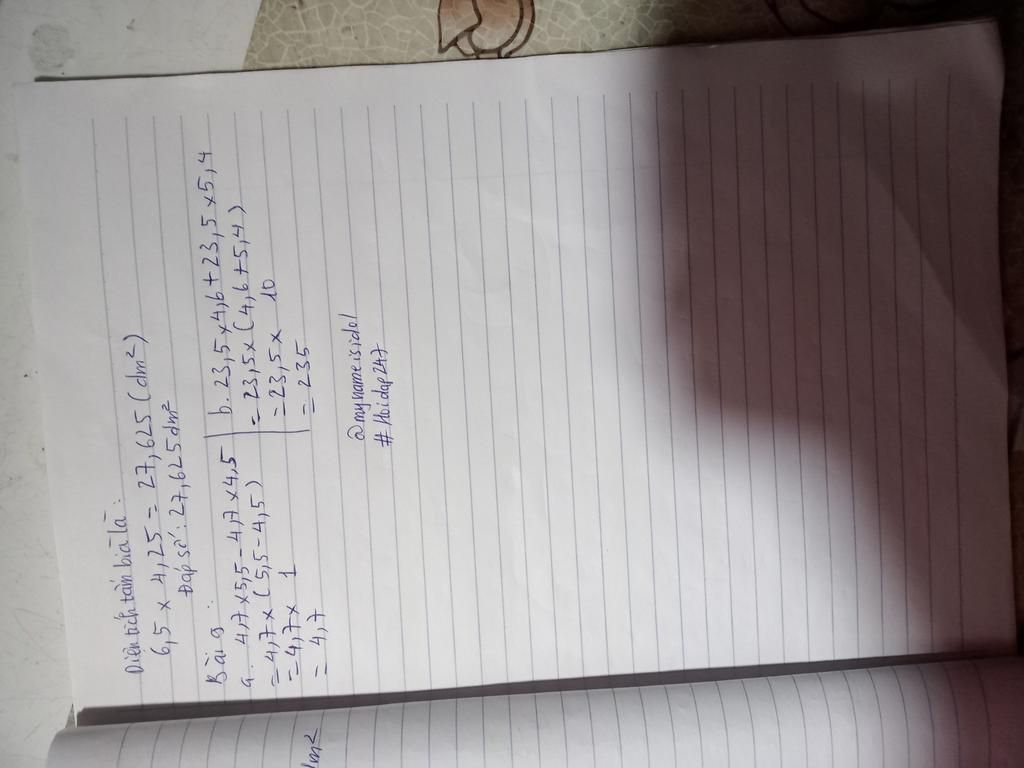 Diện tích tấm bìa là:
6,5 x 4,25 = 27,625 (dm²)
Đáp số: 27,625 dm²
Bài 9:
a. 4,7 x 5,5 - 4,7 x 4,5
= 4,7 x (5,5 - 4,5)
= 4,7 x 1
= 4,7
b. 23,5 x 4,6 + 23,5 x 5,4
= 23,5 x (4,6 + 5,4)
= 23,5 x 10
= 235
@mynameisidol
#hoidap247
dm²